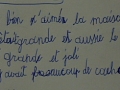 bon j'aimes la maison
était grande et aussie le
grande et joli
y avait beaucoup de cache